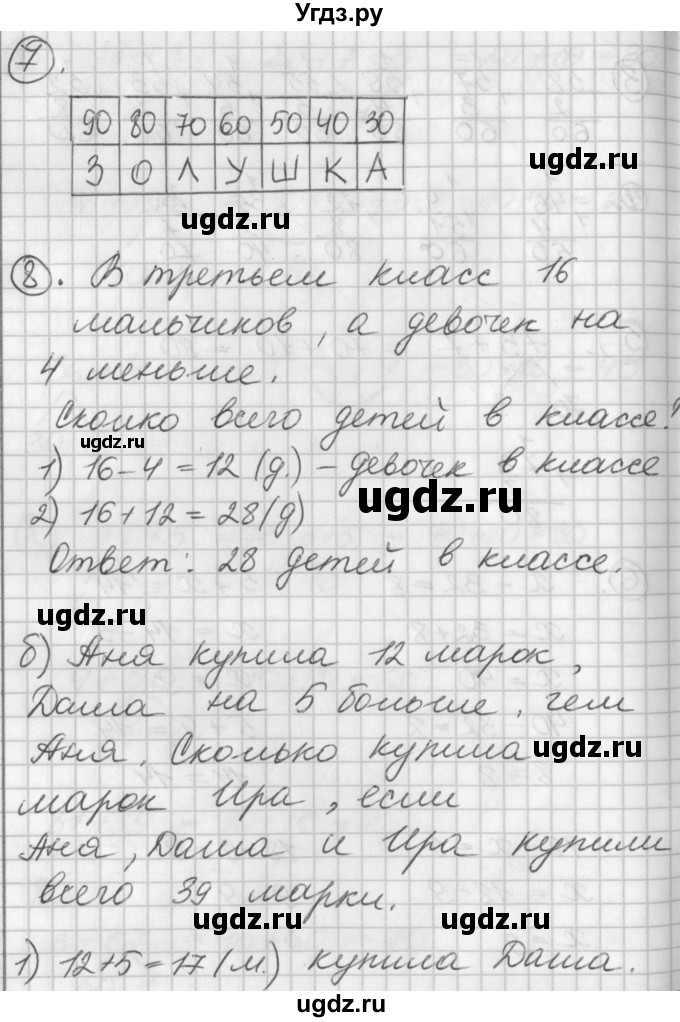 Угдз.ру
7.
90 80 70 60 50 40 30
З О Л У Ш К А
ugdz.ru
ugdz.ru
8. В третьем класс 16
мальчиков, а девочек на
4 меньше.
Сколко всего детей в классе?
ugdz.ru
1) 16-4=12 (д.) - девочек в классе
ugdz.ru
2) 16+12=28(д)
Ответ: 28 детей в классе.
ugdz.ru
б) Аня купила 12 марок,
Даша на 5 больше, чем
Аня. Сколько купила
ugdz.ru
марок Ира, если
Аня, Даша и Ира купили
всего 39 марки.
ugdz.ru
ugdz.ru
1) 12+5=17(м.) купила Даша.
ugdz.ru